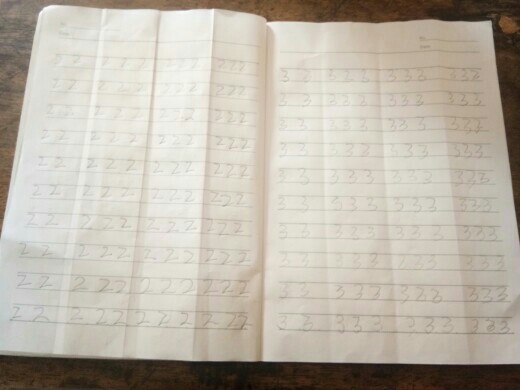 2 2 2 2 2 2 2 2 2 2 2
2 2 2 2 2 2 2 2 2 2 2
2 2 2 2 2 2 2 2 2 2 2
2 2 2 2 2 2 2 2 2 2 2
2 2 2 2 2 2 2 2 2 2 2
2 2 2 2 2 2 2 2 2 2 2
2 2 2 2 2 2 2 2 2 2 2
2 2 2 2 2 2 2 2 2 2 2
2 2 2 2 2 2 2 2 2 2 2
2 2 2 2 2 2 2 2 2 2 2
No.
Date
3 3 3 3 3 3 3 3 3 3 3
3 3 3 3 3 3 3 3 3 3 3
3 3 3 3 3 3 3 3 3 3 3
3 3 3 3 3 3 3 3 3 3 3
3 3 3 3 3 3 3 3 3 3 3
3 3 3 3 3 3 3 3 3 3 3
3 3 3 3 3 3 3 3 3 3 3
3 3 3 3 3 3 3 3 3 3 3
3 3 3 3 3 3 3 3 3 3 3
3 3 3 3 3 3 3 3 3 3 3